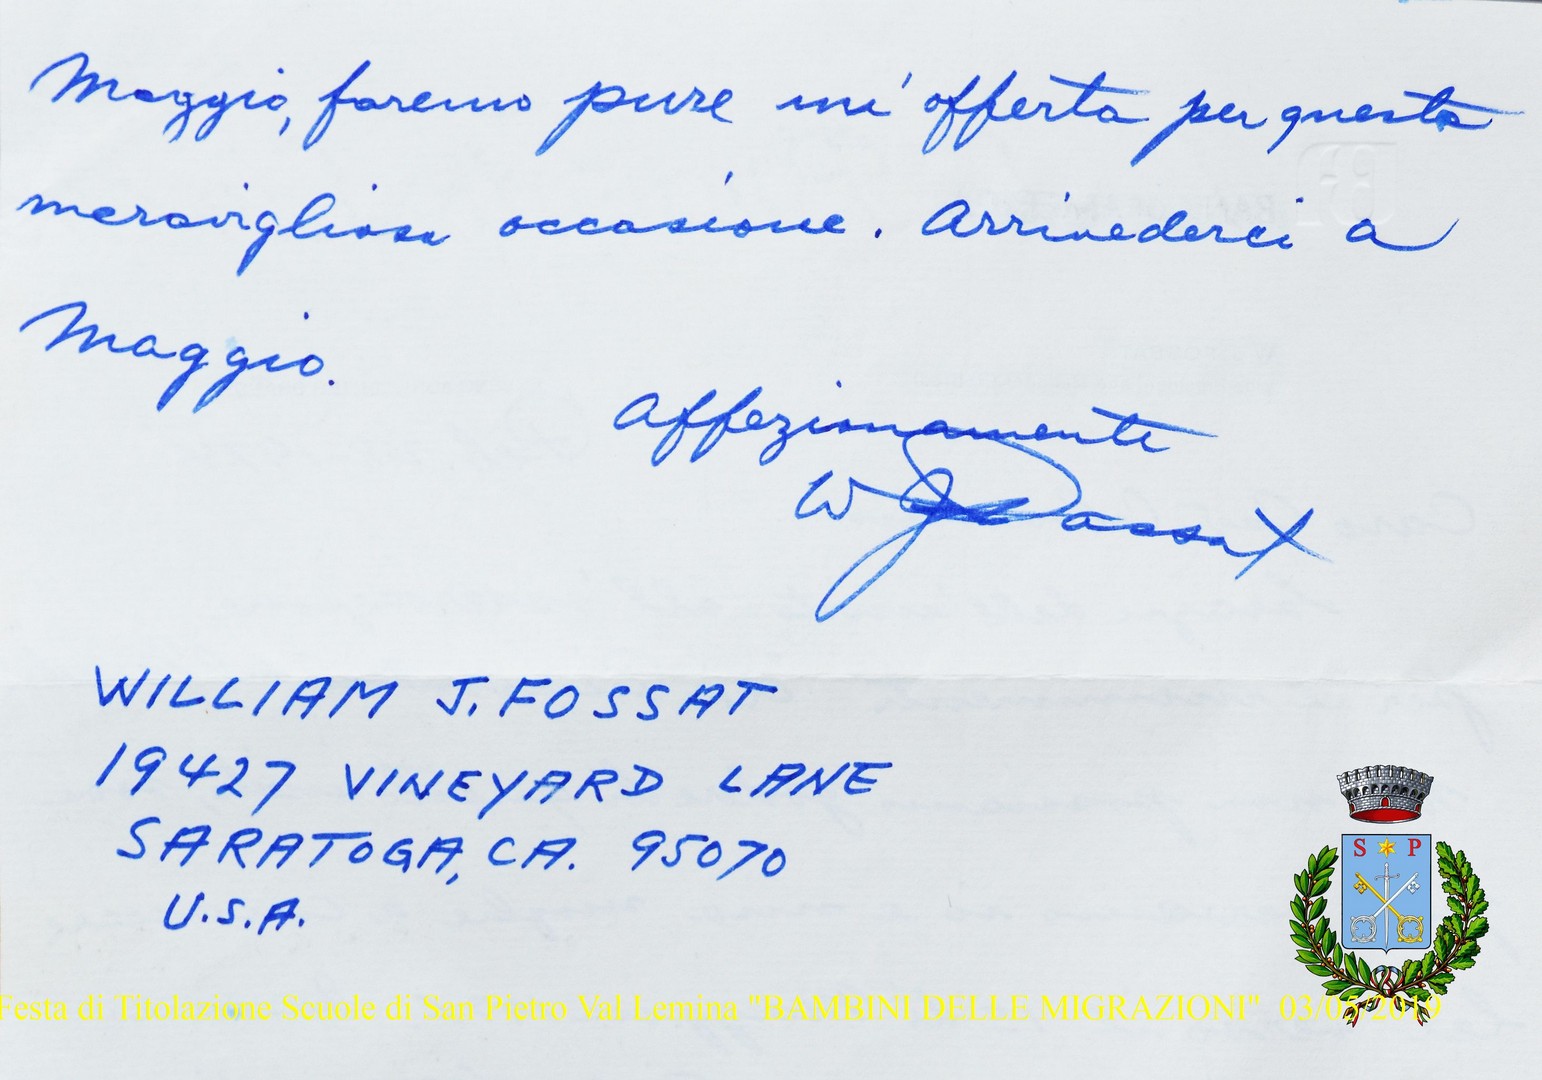 Maggio, faremo pure un' offerta per questa
meravigliosa occasione. Arrivederci a
Maggio.
Affezionamente
W J Fossat
WILLIAM J. FOSSAT
19427 VINEYARD LANE
SARATOGA, CA. 95070
U.S.A.
S P
Festa di Titolazione Scuole di San Pietro Val Lemina "BAMBINI DELLE MIGRAZIONI" 03/05/2019